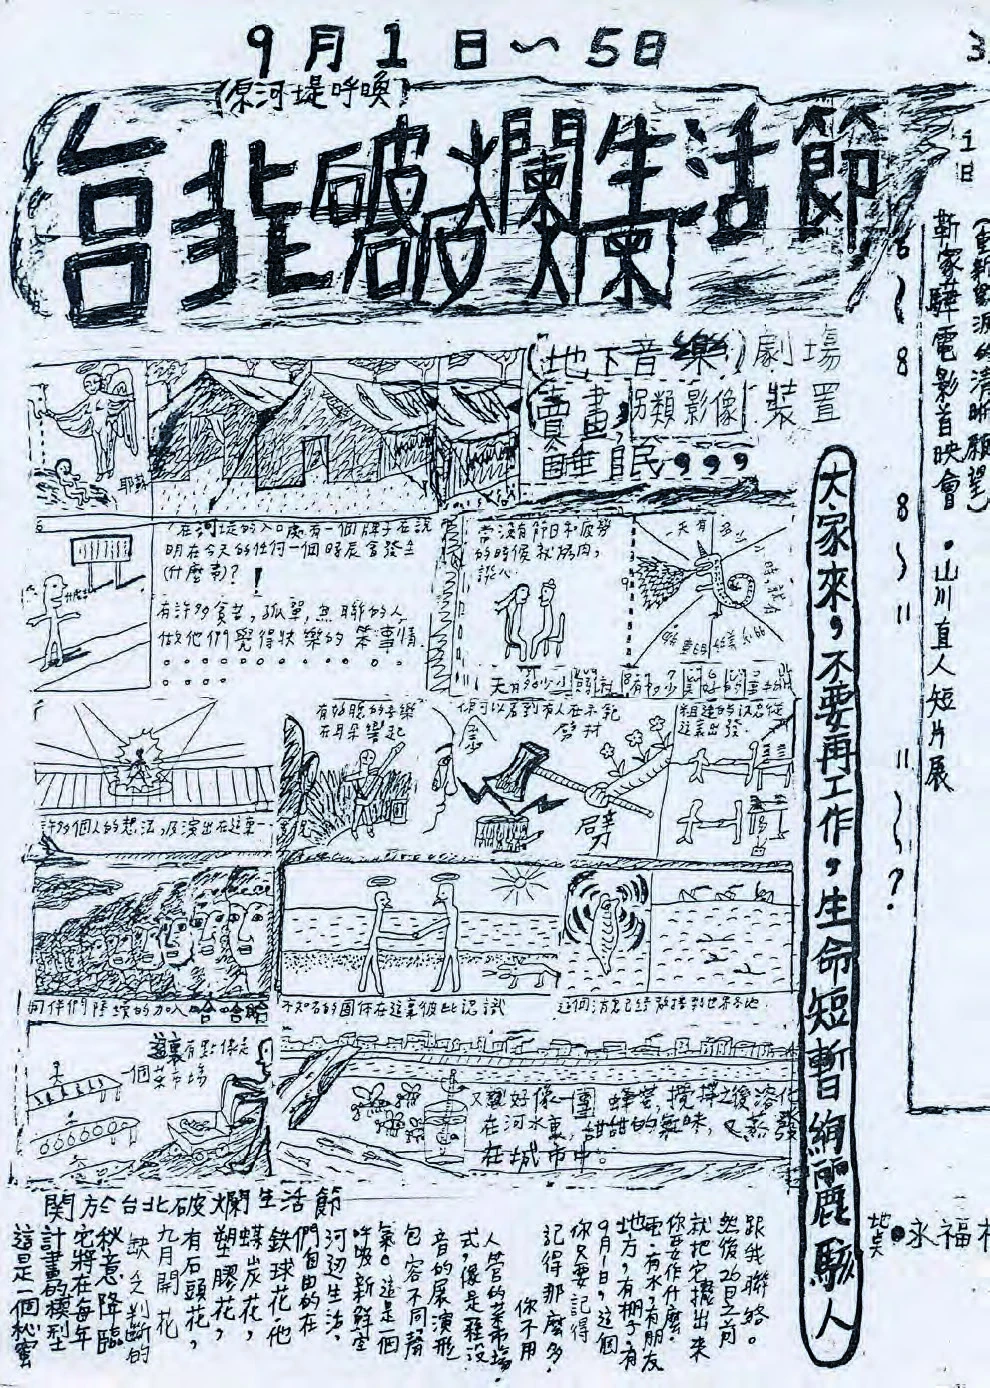 9月1日～5日
(原河堤呼喚)
台北破爛生活節
(地下音樂)劇場
賣畫,另類影像裝置
睡眠,,,
耶穌
在河堤的入口處有一個牌子在說
明在今天的任何一個時辰會發生
(什麼事)?!
有許多貧苦,孤單,無聊的人
做他們覺得快樂的笨事情.
當沒有節日和疲勞
的時候就烤肉,
談心.
許多個人的想法,及演出在這裏
有好聽的音樂
在耳朵響起
你可以看到有人在木訊
劈材
劈
粗造的訊息從
這裏出發.
同伴們陸續的加入哈哈哈
不知名的團体在這裏彼此認識
這個消息已經散播到世界各地.
這裏有點像是
一個菜市場
又好像一團蜂蜜,攪拌之後溶化
在河水裏,甜甜的氣味,又散發
在城市中。
大家來,不要再工作,生命短暫絢麗駭人
1日
6～8
8～11
11～?
(重新點滅的清晰願望)
靳家驊電影首映會•山川直人短片展
地点●永福
關於台北破爛生活節
這是一個秘密
計畫的模型
它將在每年
秋意降臨
缺乏判斷的
九月開花
有石頭花,
塑膠花,
蝶炭花,
鉄球花,他
們自由的在
河边生活,
呼吸新鮮空
氣。這是一個
包容不同聲
音的展演形
式,像是種設
人營的菜市場.
你不用
記得那麼多.
你只要記得
9月1日,這個
地方,有棚子,有
電,有水,有朋友
你要作什麼.
就把它搬出來
然後26日之前
跟我聯絡。